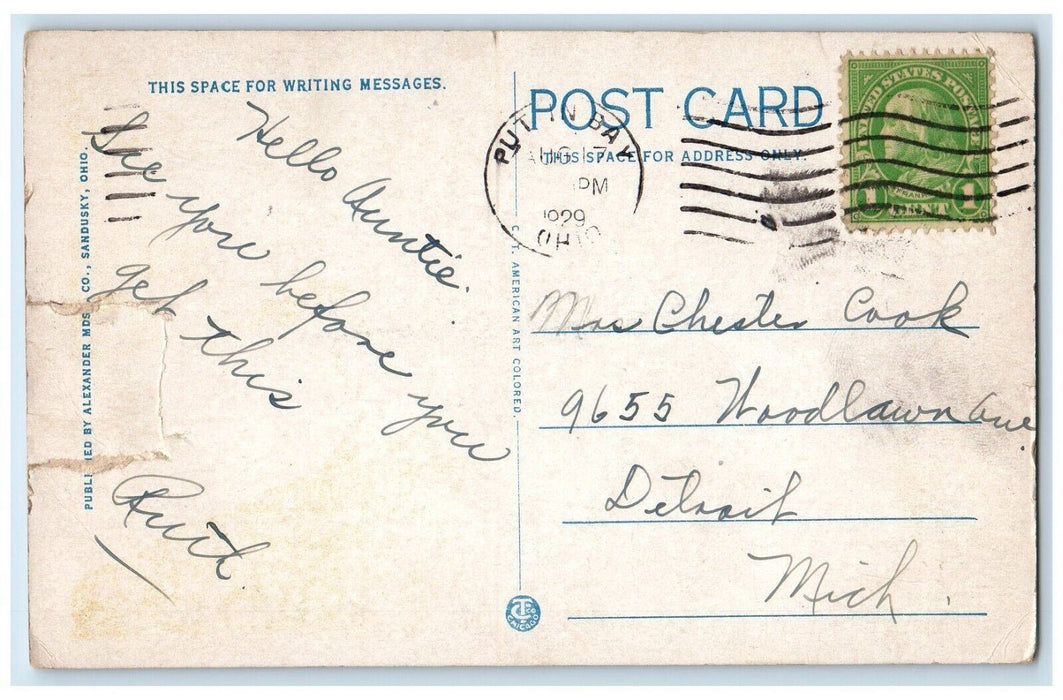 THIS SPACE FOR WRITING MESSAGES.
Hello Auntie.
See you before you
get this
Ruth.
PUBLI ED BY ALEXANDER MDS CO., SANDUSKY, OHIO.
C.T. AMERICAN ART COLORED.
CHICAGO
POST CARD
THIS SPACE FOR ADDRESS ONLY.
PUT IN BAY
AUG 17
PM
1929
OHIO
UNITED STATES POSTAGE
1 CENT 1
Mrs Chester Cook
9655 Woodlawn Ave
Detroit
Mich.